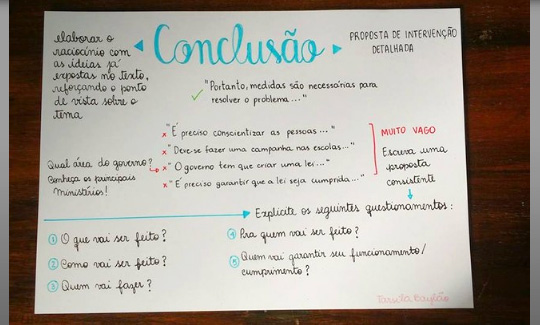 elaborar o
raciocínio com
as ideias já
expostas no texto,
reforçando o ponto
de vista sobre o
tema
Conclusão
PROPOSTA DE INTERVENÇÃO
DETALHADA
"Portanto, medidas são necessárias para
resolver o problema..."
x "É preciso conscientizar as pessoas..."
x "Deve-se fazer uma campanha nas escolas..."
x "O governo tem que criar uma lei..."
x "É preciso garantir que a lei seja cumprida..."
MUITO VAGO
Escreva uma
proposta
consistente
Qual área do governo?
Conheça os principais
ministérios!
Explicite os seguintes questionamentos:
1 O que vai ser feito?
2 Como vai ser feito?
3 Quem vai fazer?
4 Pra quem vai ser feito?
5 Quem vai garantir seu funcionamento/
cumprimento?